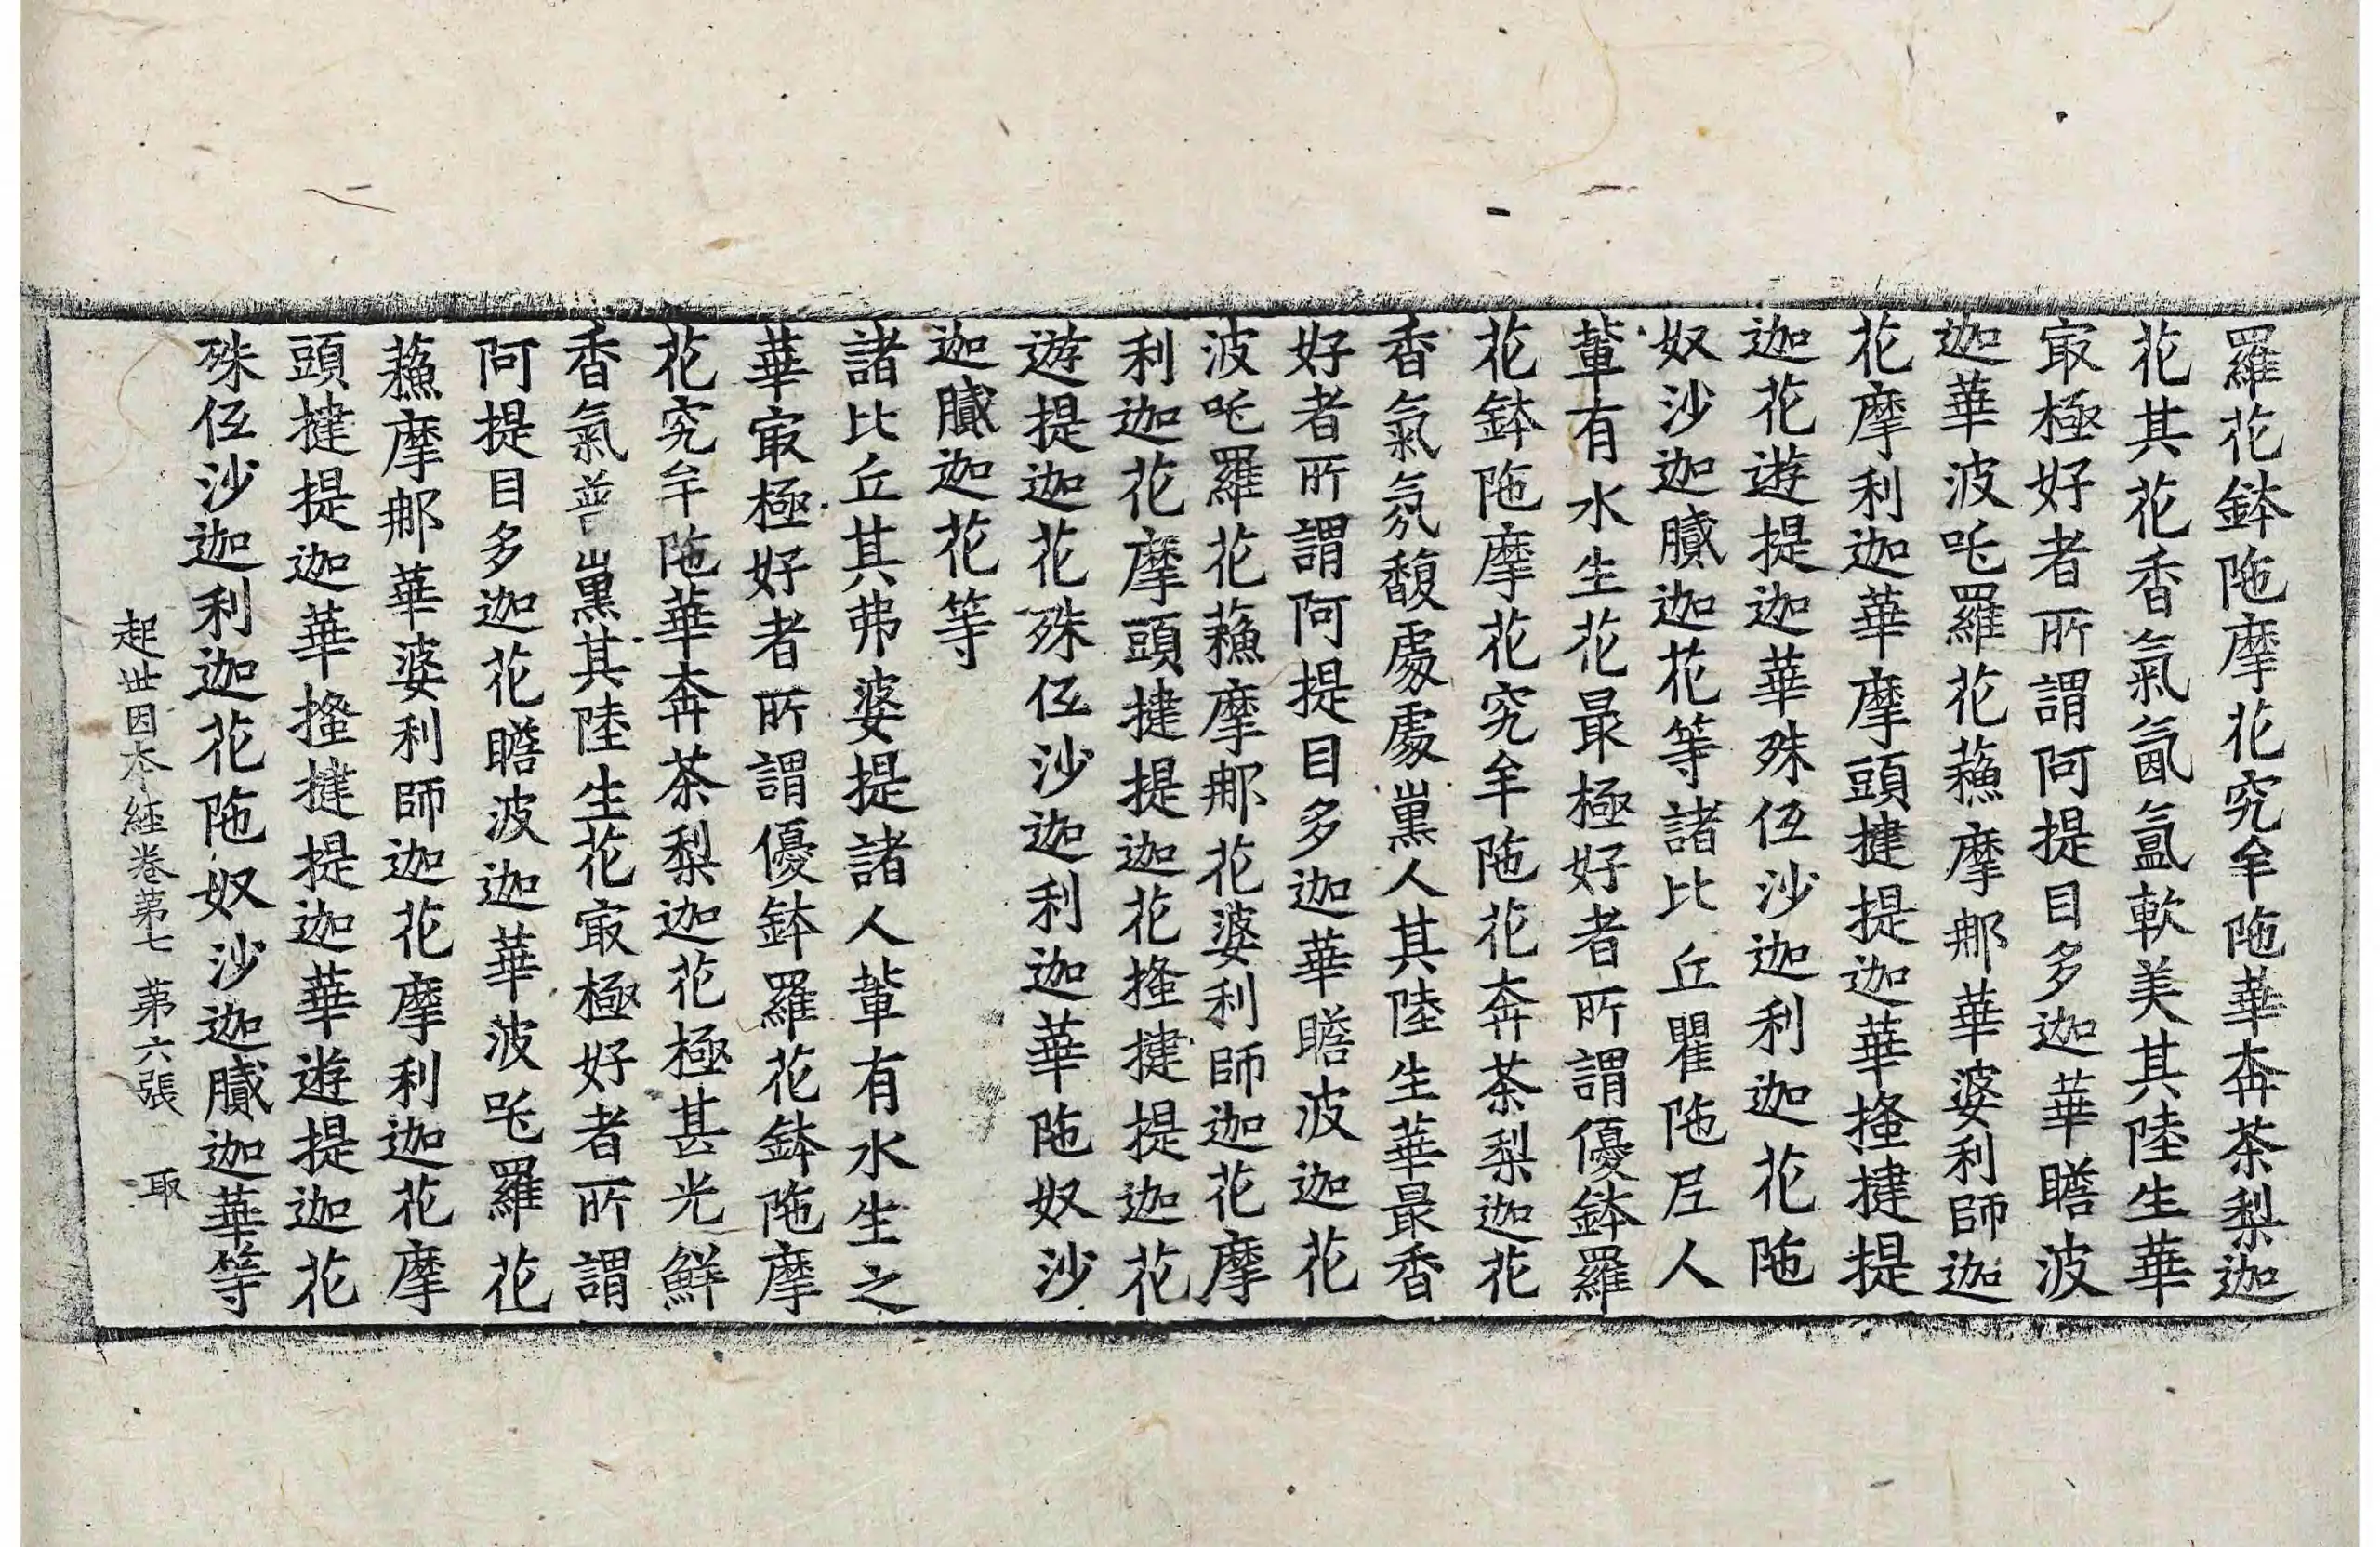 羅花鉢陁摩花究牟陁華奔茶梨迦
花其花香氣氤氳軟美其陸生華
㝡極好者所謂阿提目多迦華瞻波
迦華波吒羅花蘓摩那華婆利師迦
花摩利迦華摩頭揵提迦華搔揵提
迦花遊提迦華殊伍沙迦利迦花陁
奴沙迦膩迦花等諸比丘瞿陁尼人
軰有水生花最極好者所謂優鉢羅
花鉢陁摩花究牟陁花奔茶梨迦花
香氣氛馥處處熏人其陸生華最香
好者所謂阿提目多迦華瞻波迦花
波吒羅花蘓摩那花婆利師迦花摩
利迦花摩頭揵提迦花搔揵提迦花
遊提迦花殊伍沙迦利迦華陁奴沙
迦膩迦花等
諸比丘其弗婆提諸人軰有水生之
華㝡極好者所謂優鉢羅花鉢陁摩
花究牟陁華奔茶梨迦花極甚光鮮
香氣普熏其陸生花㝡極好者所謂
阿提目多迦花瞻波迦華波吒羅花
蘓摩那華婆利師迦花摩利迦花摩
頭揵提迦華搔揵提迦華遊提迦花
殊伍沙迦利迦花陁奴沙迦膩迦華等
起世因本經卷第七 第六張 取